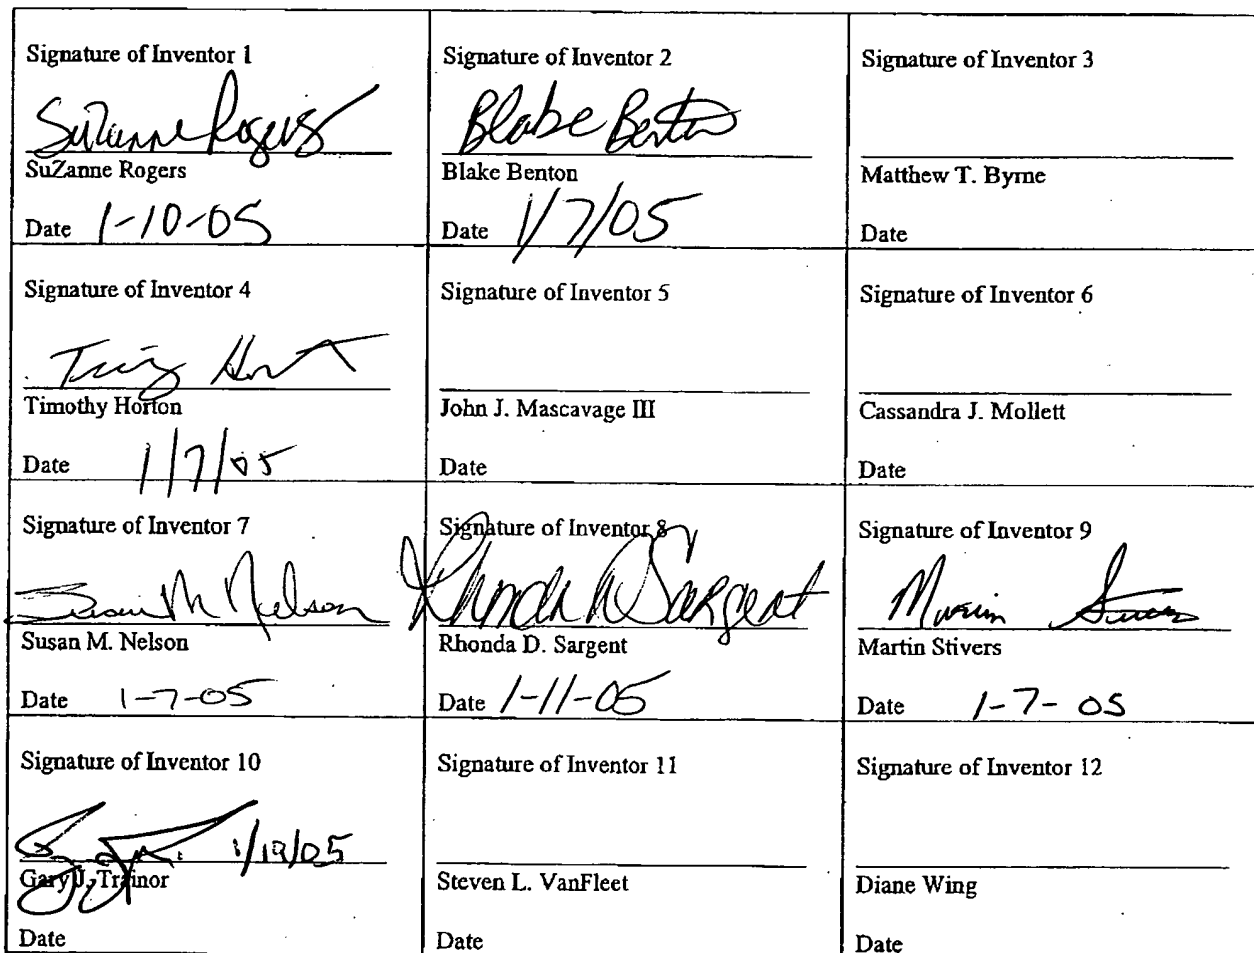 Signature of Inventor 1
SuZanne Rogers
SuZanne Rogers
Date 1-10-05
Signature of Inventor 2
Blake Benton
Blake Benton
Date 1/7/05
Signature of Inventor 3
Matthew T. Byrne
Date
Signature of Inventor 4
Timothy Horton
Date 1/7/05
Signature of Inventor 5
John J. Mascavage III
Date
Signature of Inventor 6
Cassandra J. Mollett
Date
Signature of Inventor 7
Susan M Nelson
Susan M. Nelson
Date 1-7-05
Signature of Inventor 8
Rhonda D Sargent
Rhonda D. Sargent
Date 1-11-05
Signature of Inventor 9
Martin Stivers
Martin Stivers
Date 1-7-05
Signature of Inventor 10
Gary J. Trainor
Date
Signature of Inventor 11
Steven L. VanFleet
Date
Signature of Inventor 12
Diane Wing
Date